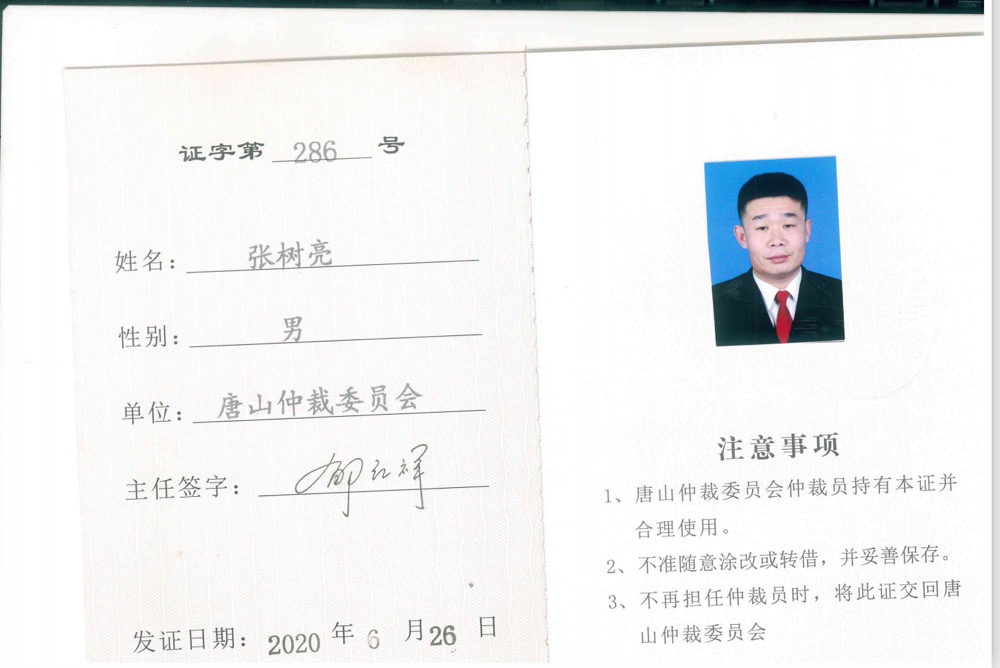 证字第 286 号
姓名： 张树亮
性别： 男
单位： 唐山仲裁委员会
主任签字：
发证日期： 2020 年 6 月 26 日
注意事项
1、唐山仲裁委员会仲裁员持有本证并
合理使用。
2、不准随意涂改或转借，并妥善保存。
3、不再担任仲裁员时，将此证交回唐
山仲裁委员会